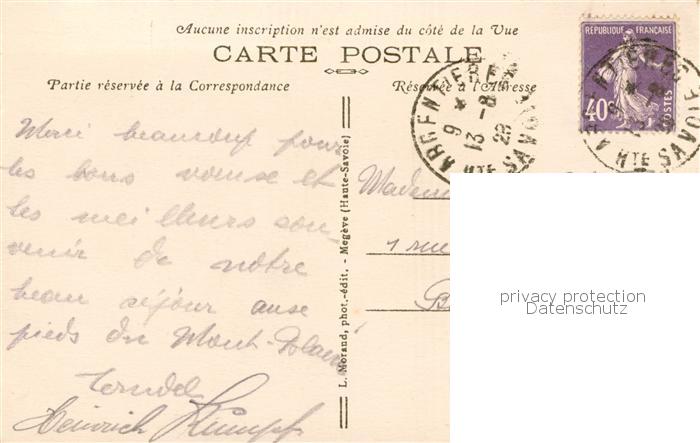 Aucune inscription n'est admise du côté de la Vue
CARTE POSTALE
Partie réservée à la Correspondance
Réservée à l'Adresse
RÉPUBLIQUE FRANÇAISE
40c
POSTES
ARGENTIERE
9 * 13 -8 28
HTE SAVOIE
HTE SAVOIE
Merci beaucoup pour
les bons vœuse et
les meilleurs sou-
venir de notre
beau séjour ause
pieds du Mont-Blanc
Trudel
Heinrich Kumpf
L. Morand, phot.-édit. - Megève (Haute-Savoie)
Madem
1 rue
B
privacy protection
Datenschutz